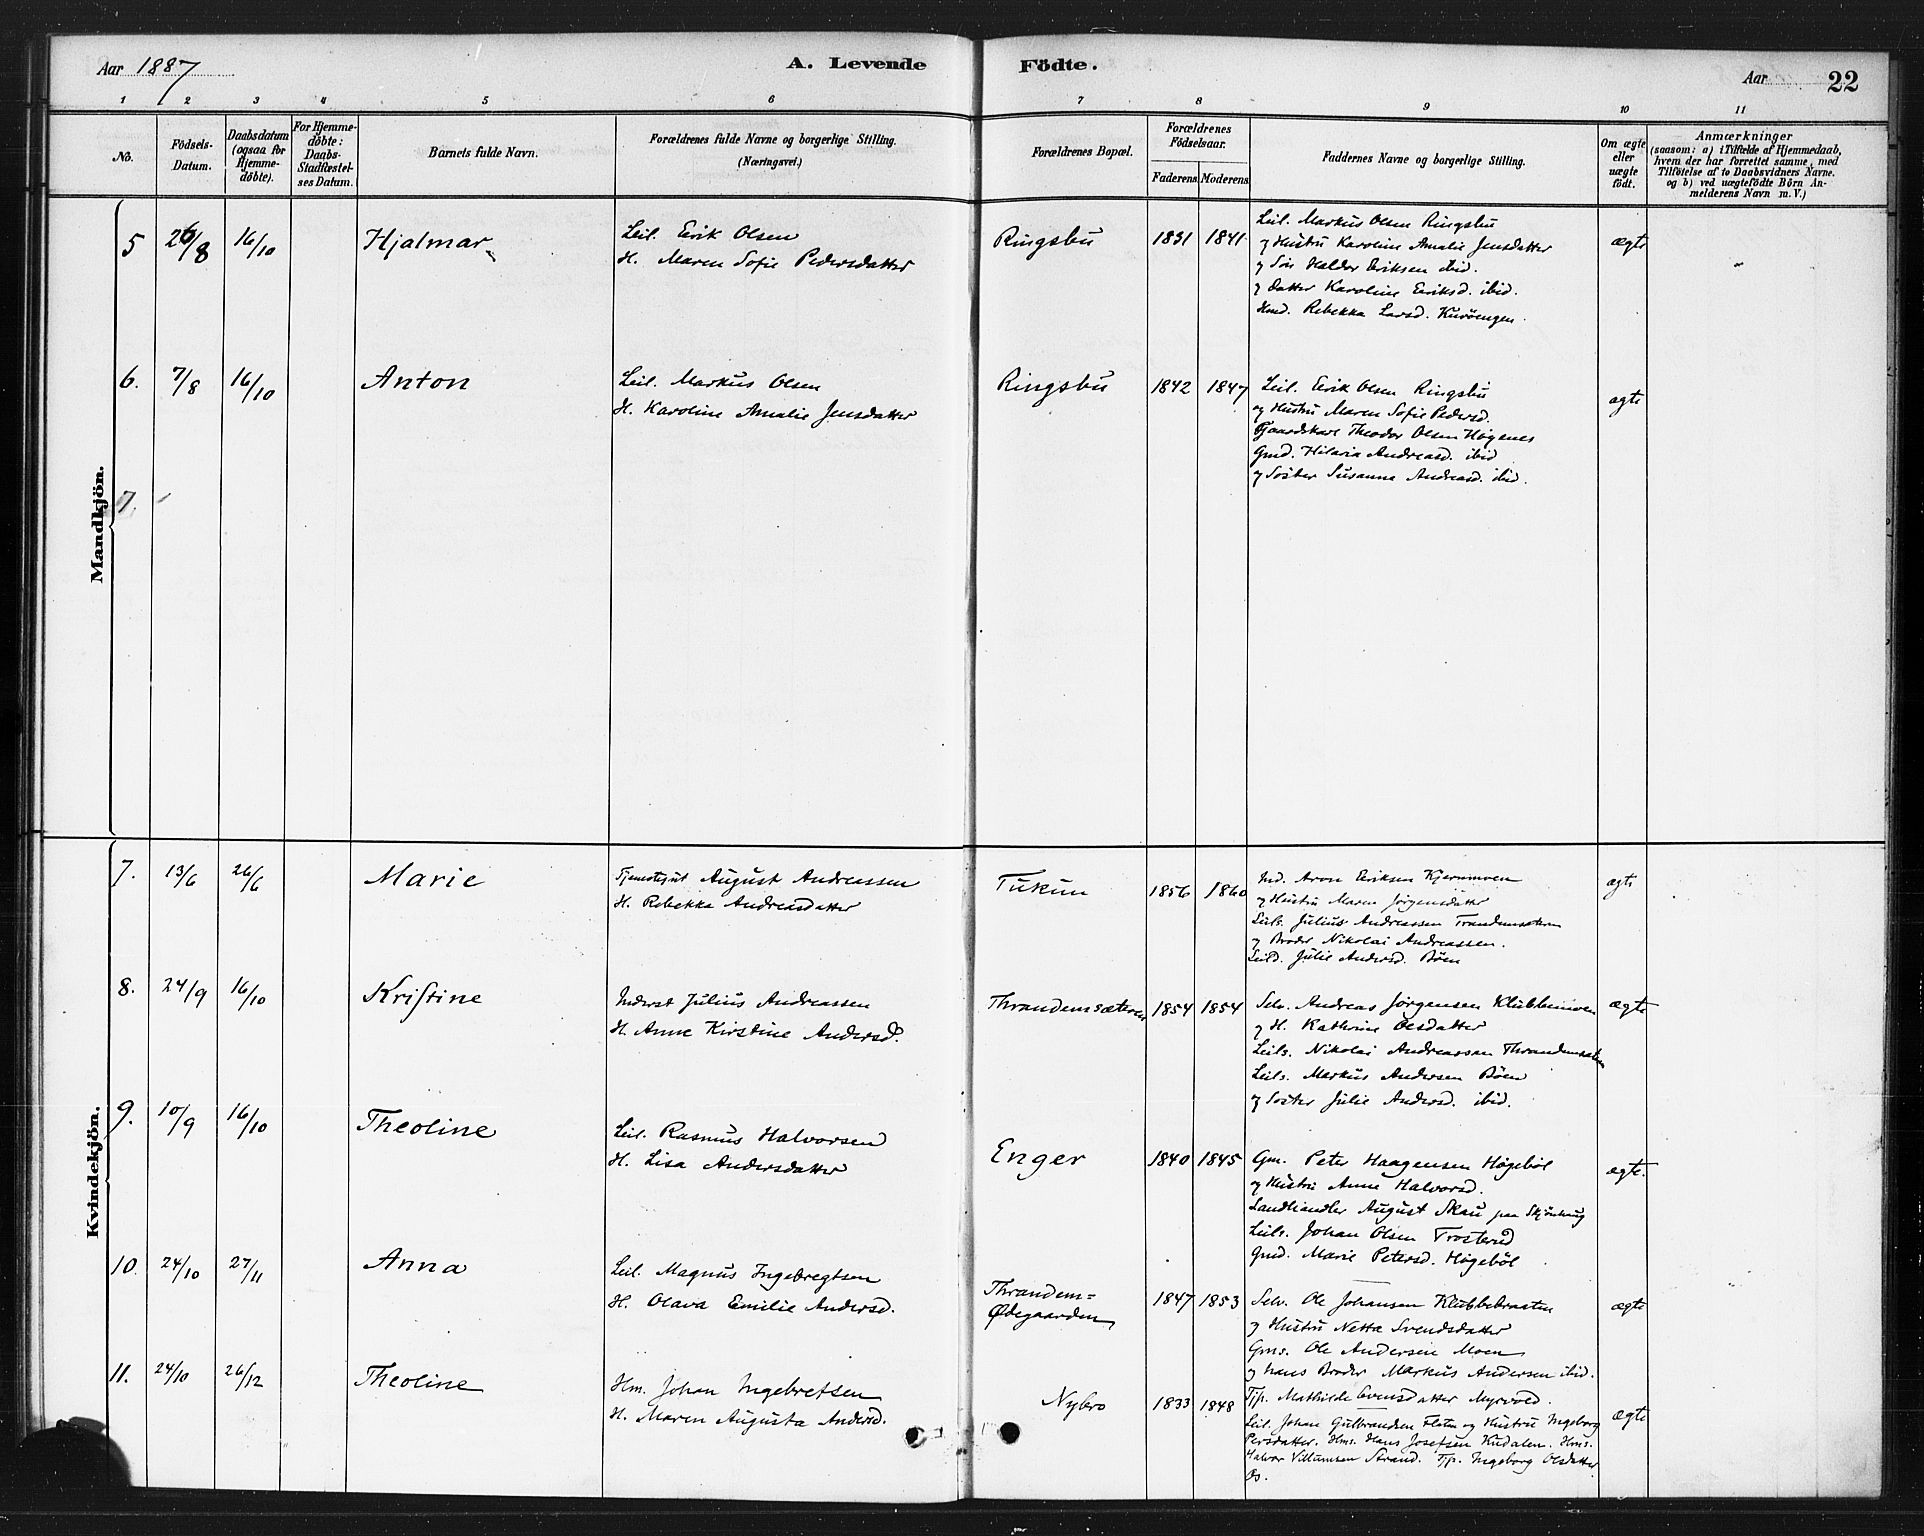 Aar 1887
A. Levende Födte.
Aar 22
1 2 3 4 5 6 7 8 9 10 11
No.
Födsels-Datum.
Daabsdatum (ogsaa for Hjemme-døbte).
For Hjemme-døbte: Daabs-Stadfæstel-ses Datum.
Barnets fulde Navn.
Forældrenes fulde Navne og borgerlige Stilling. (Næringsvei.)
Forældrenes Bopæl.
Forældrenes Födselsaar.
Faderens. Moderens.
Faddernes Navne og borgerlige Stilling.
Om ægte eller uægte födt.
Anmærkninger
(saasom: a) i Tilfælde af Hjemmedaab,
hvem der har forrettet samme, med
Tilföielse af to Daabsvidners Navne.
og b) ved uægtefödte Börn An-
melderens Navn m. V.)
Mandkjön.
5 26/8 16/10 Hjalmar
Leil. Erik Olsen
H. Maren Sofie Pedersdatter
Ringsbu 1831 1841
Leil. Markus Olsen Ringsbu
og Hustru Karoline Amalie Jensdatter
og Søn Haldor Eriksen ibid.
og Datter Karoline Eriksd. ibid.
Hmd. Rebekka Larsd. Kurôengen.
ægte
6. 7/8 16/10 Anton
Leil. Markus Olsen
H. Karoline Amalie Jensdatter
Ringsbu 1842 1847
Leil. Erik Olsen Ringsbu
og Hustru Maren Sofie Pedersd.
Gaardskarl Theodor Olsen Høgsnes
Gmd. Hilaria Andreasd. ibid
og Søster Susanne Andreasd. ibid.
ægte
7.
Kvindekjön.
7. 13/6 26/6 Marie
Tjenestegut August Andreassen
H. Rebekka Andreasdatter
Tukun 1856 1860
Ind. Aron Eriksen Kjernmoen
og Hustru Maren Jørgensdatter
Leils. Julius Andreassen Trandemsæteren
og Broder Nikolai Andreassen.
Leild. Julie Andersd. Bøen
ægte
8. 24/9 16/10 Kristine
Inderst Julius Andreassen
H. Anne Kirstine Andersd.
Thrandemsæteren 1854 1854
Selv. Andreas Jørgensen Klubbemoen
og H. Kathrine Olsdatter
Leils. Nikolai Andreassen Thrandemsæteren
Leils. Markus Andersen Bøen
og Søster Julie Andersd. ibid.
ægte
9. 10/9 16/10 Theoline
Leil. Rasmus Halvorsen
H. Lisa Andersdatter
Enger 1840 1845
Gm. Peter Haagensen Høgebøl
og Hustru Anne Halvorsd.
Landhandler August Skau paa Skjønhaug
Leils. Johan Olsen Trosterud
Gmd. Marie Petersd. Høgebøl
ægte.
10. 24/10 27/11 Anna
Leil. Magnus Ingebregtsen
H. Olava Emilie Andersd.
Thrandem=
Ødegaarden 1847 1853
Selv. Ole Johansen Klubbebraaten
og Hustru Netta Svendsdatter
Gms. Ole Andersen Moen
og hans Broder Markus Andersen ibid.
Tjp. Mathilde Evensdatter Myrvold.
ægte
11. 24/10 26/12 Theoline
Hm. Johan Ingebretsen
H. Maren Augusta Andersd.
Nybro 1833 1848
Leil. Johan Gulbrandsen Floten og Hustru Ingeborg
Persdatter. Hms. Hans Josefsen Kudalen. Hms.
Halvor Villumsen Strand. Tjp. Ingeborg Olsdatter
Os.
ægte